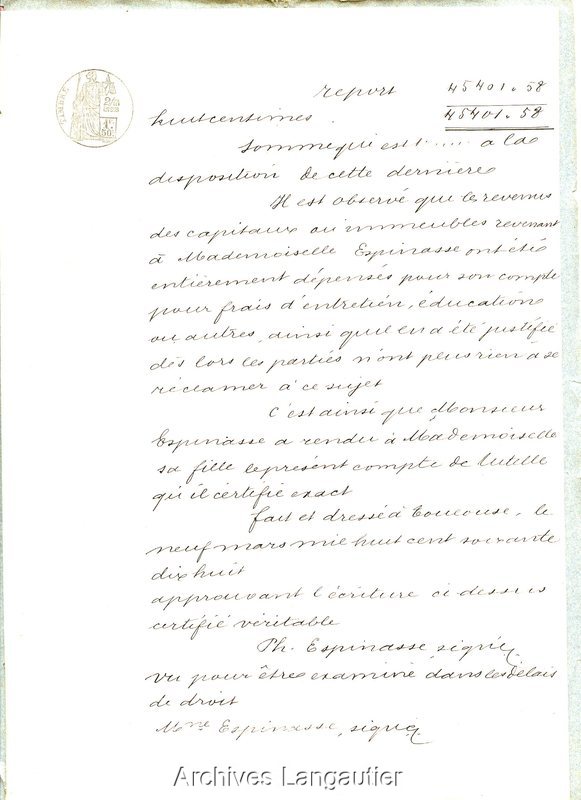 TIMBRE
report 45401.58
huit centimes. 45401.58
Somme qui est à la
disposition de cette dernière
Il est observé que les revenus
des capitaux ou immeubles revenant
à Mademoiselle Espinasse ont été
entièrement dépensés pour son compte
pour frais d'entretien, éducation
ou autres, ainsi qu'il en a été justifié
dès lors les parties n'ont plus rien à se
réclamer à ce sujet
C'est ainsi que Monsieur
Espinasse a rendu à Mademoiselle
sa fille le présent compte de tutelle
qu'il certifie exact
fait et dressé à Toulouse, le
neuf mars mil huit cent soixante
dix huit
approuvant l'écriture ci dessus
certifié véritable
Ph. Espinasse, signé
vu pour être examiné dans les délais
de droit
Espinasse, signé
Archives Langautier